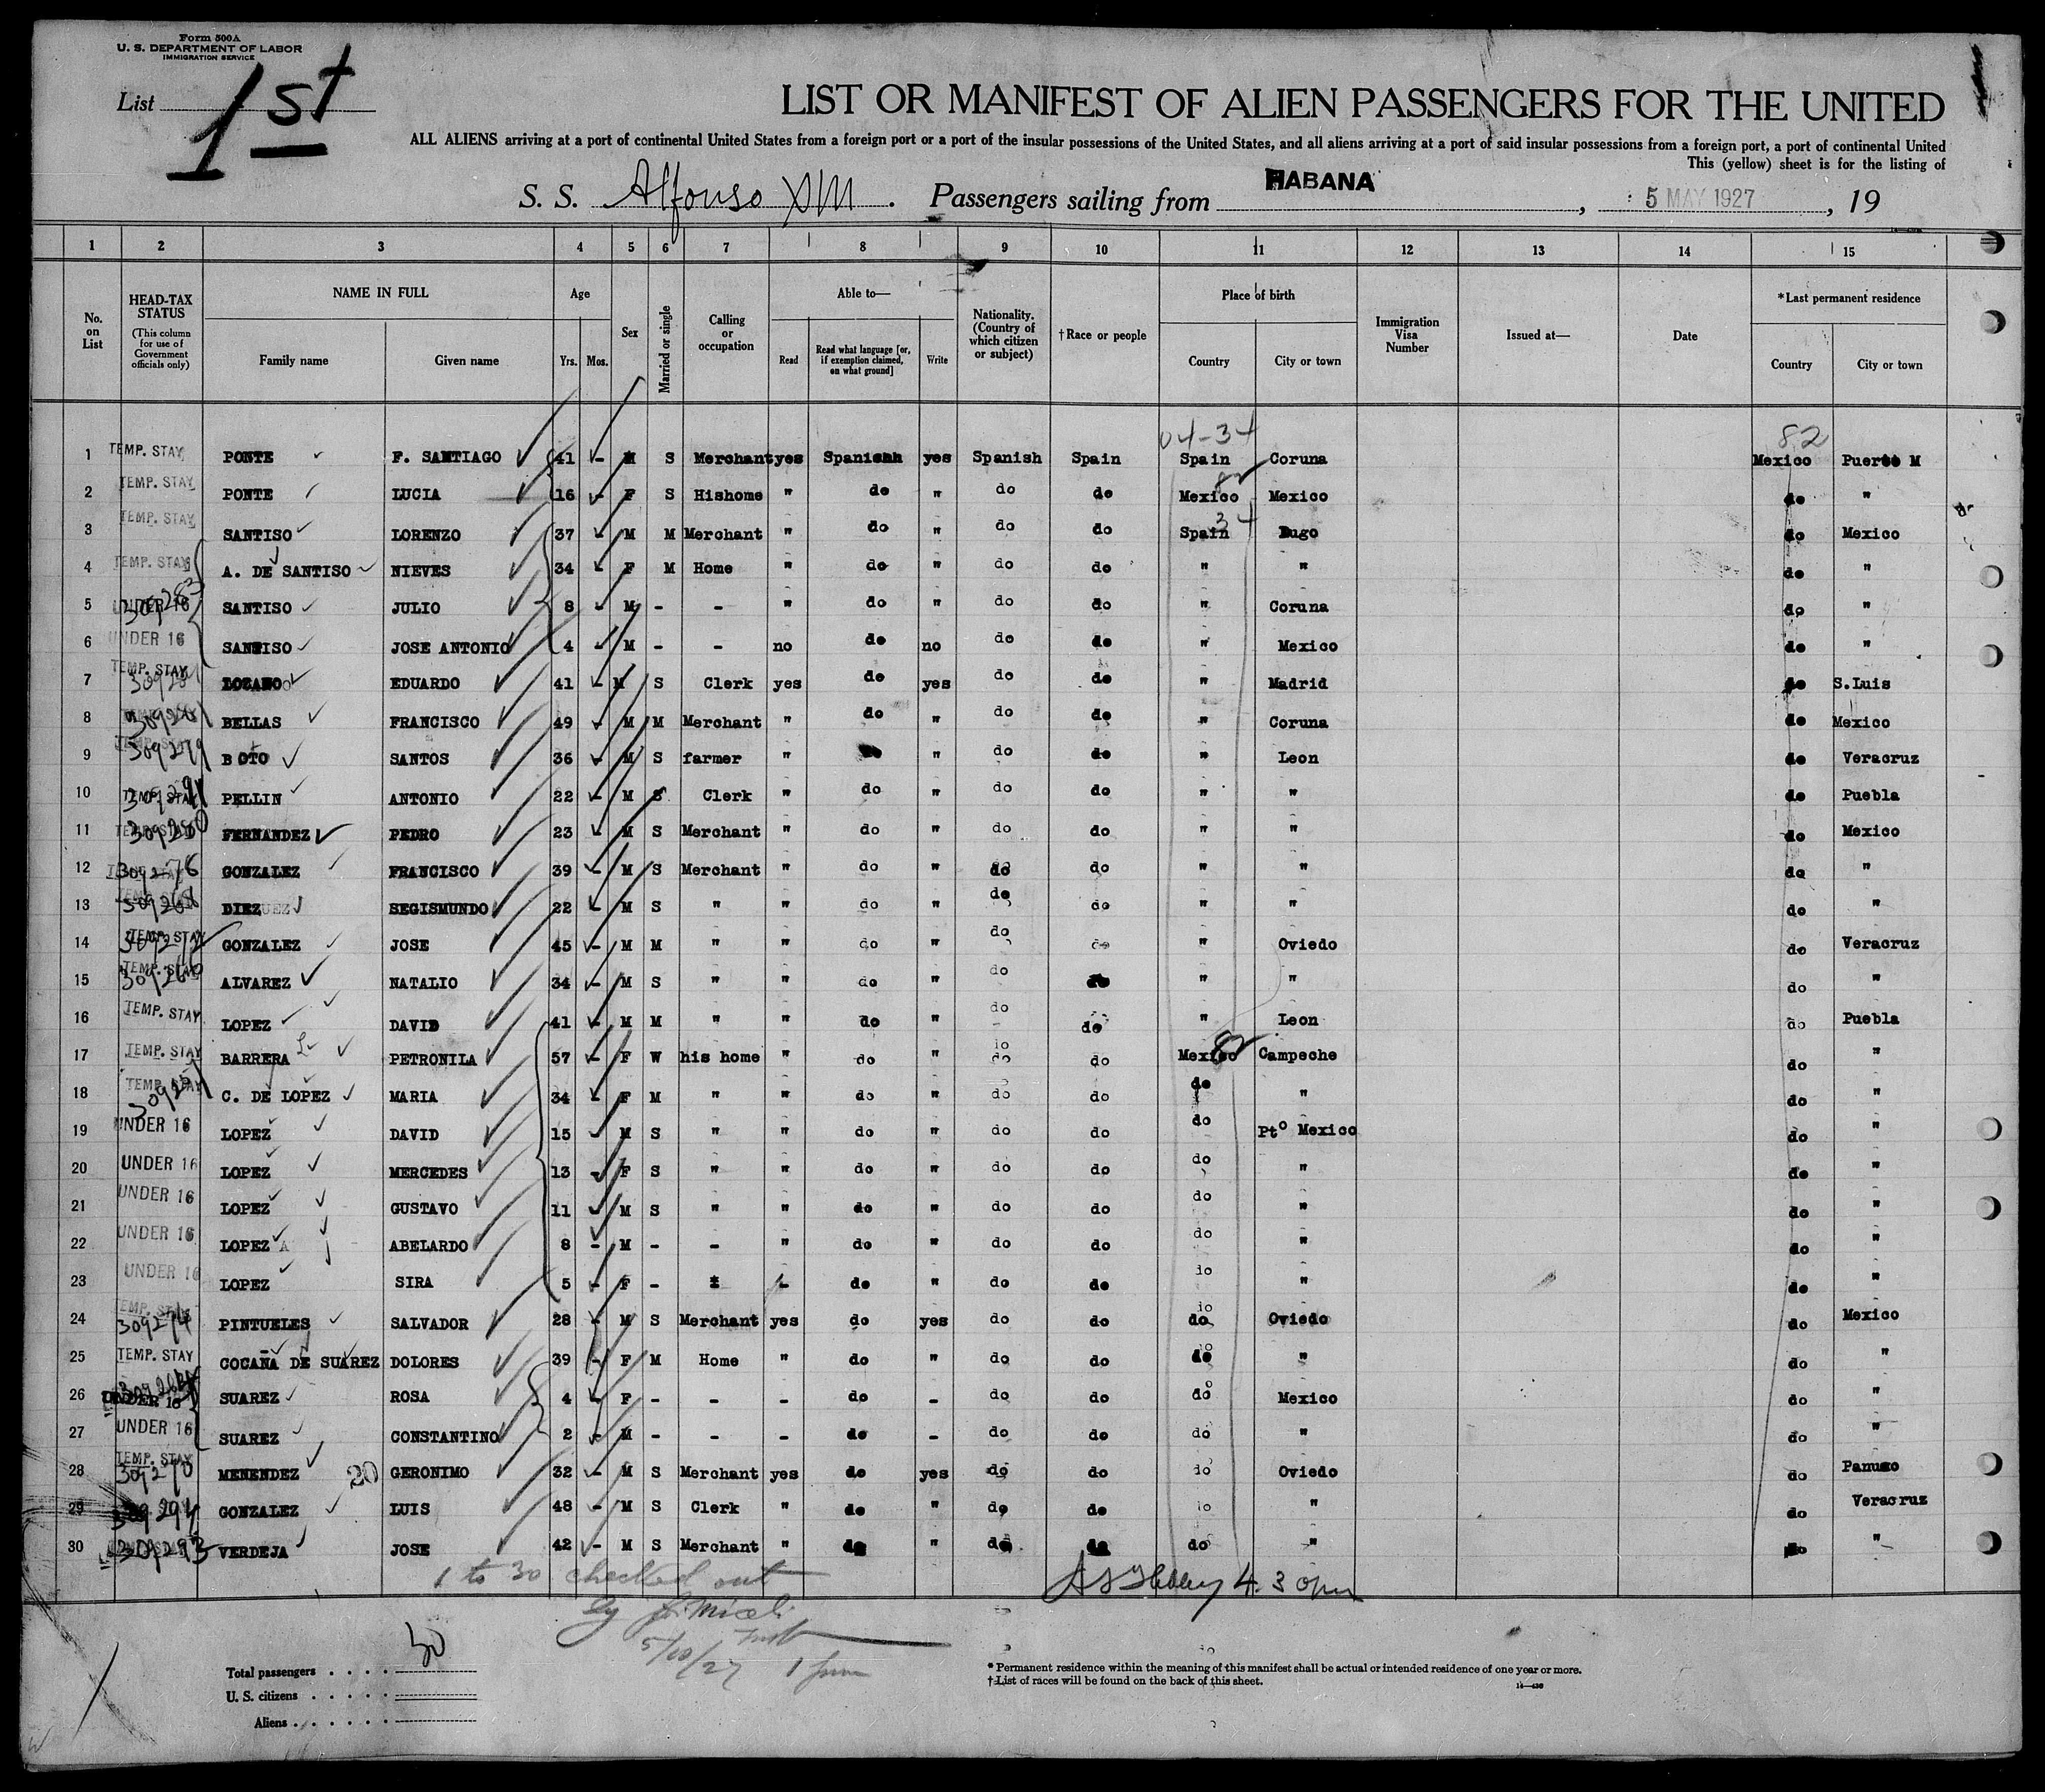 Form 500A
U. S. DEPARTMENT OF LABOR
IMMIGRATION SERVICE
List 1st
LIST OR MANIFEST OF ALIEN PASSENGERS FOR THE UNITED
ALL ALIENS arriving at a port of continental United States from a foreign port or a port of the insular possessions of the United States, and all aliens arriving at a port of said insular possessions from a foreign port, a port of continental United
This (yellow) sheet is for the listing of
S. S. Alfonso XIII. Passengers sailing from HABANA, 5 MAY 1927, 19
1 2 3 4 5 6 7 8 9 10 11 12 13 14 15
No. on List HEAD-TAX STATUS (This column for use of Government officials only) NAME IN FULL Family name Given name Age Yrs. Mos. Sex Married or single Calling or occupation Able to— Read Read what language [or, if exemption claimed, on what ground] Write Nationality. (Country of which citizen or subject) †Race or people Place of birth Country City or town Immigration Visa Number Issued at— Date *Last permanent residence Country City or town
04-34 82
1 TEMP. STAY PONTE F. SANTIAGO 41 - M S Merchant yes Spanish yes Spanish Spain Spain Coruna Mexico Puerto M
2 TEMP. STAY PONTE LUCIA 16 - F S Hishome " do " do do Mexico Mexico do "
3 TEMP. STAY SANTISO LORENZO 37 - M M Merchant " do " do do Spain 34 Lugo do Mexico
4 TEMP. STAY A. DE SANTISO NIEVES 34 - F M Home " do " do do " " do "
5 UNDER 16 SANTISO JULIO 8 - M - - " do " do do " Coruna do "
6 UNDER 16 SANTISO JOSE ANTONIO 4 - M - - no do no do do " Mexico do "
7 TEMP. STAY LOZANO EDUARDO 41 - M S Clerk yes do yes do do " Madrid do S.Luis
8 BELLAS FRANCISCO 49 - M M Merchant " do " do do " Coruna do Mexico
9 309279 BOTO SANTOS 36 - M S farmer " do " do do " Leon do Veracruz
10 TEMP. STAY PELLIN ANTONIO 22 - M S Clerk " do " do do " " do Puebla
11 309280 FERNANDEZ PEDRO 23 - M S Merchant " do " do do " " do Mexico
12 309276 GONZALEZ FRANCISCO 39 - M S Merchant " do " do do " " do "
13 309268 DIEZ SEGISMUNDO 22 - M S " " do " do do " " do "
14 TEMP. STAY 309272 GONZALEZ JOSE 45 - M M " " do " do do " Oviedo do Veracruz
15 TEMP. STAY ALVAREZ NATALIO 34 - M S " " do " do do " " do "
16 TEMP. STAY LOPEZ DAVID 41 - M M " " do " do do " Leon do Puebla
17 TEMP. STAY BARRERA PETRONILA 57 - F W his home " do " do do Mexico Campeche do "
18 TEMP. STAY C. DE LOPEZ MARIA 34 - F M " " do " do do do " do "
19 UNDER 16 LOPEZ DAVID 15 - M S " " do " do do do Pto Mexico do "
20 UNDER 16 LOPEZ MERCEDES 13 - F S " " do " do do do " do "
21 UNDER 16 LOPEZ GUSTAVO 11 - M S " " do " do do do " do "
22 UNDER 16 LOPEZ ABELARDO 8 - M - - " do " do do do " do "
23 UNDER 16 LOPEZ SIRA 5 - F - - - do " do do do " do "
24 TEMP. STAY 309274 PINTUELES SALVADOR 28 - M S Merchant yes do yes do do do Oviedo do Mexico
25 TEMP. STAY COCAÑA DE SUAREZ DOLORES 39 - F M Home " do " do do do " do "
26 UNDER 16 SUAREZ ROSA 4 - F - - - do - do do do Mexico do "
27 UNDER 16 SUAREZ CONSTANTINO 2 - M - - - do - do do do " do "
28 TEMP. STAY 309270 MENENDEZ 20 GERONIMO 32 - M S Merchant yes do yes do do do Oviedo do Panuco
29 309294 GONZALEZ LUIS 48 - M S Clerk " do " do do do " do Veracruz
30 309293 VERDEJA JOSE 42 - M S Merchant " do " do do do " do "
1 to 30 checked out
by
5/10/27 1 pm
Total passengers . . . . 30
U. S. citizens . . . . .
Aliens . . . . . .
* Permanent residence within the meaning of this manifest shall be actual or intended residence of one year or more.
† List of races will be found on the back of this sheet.